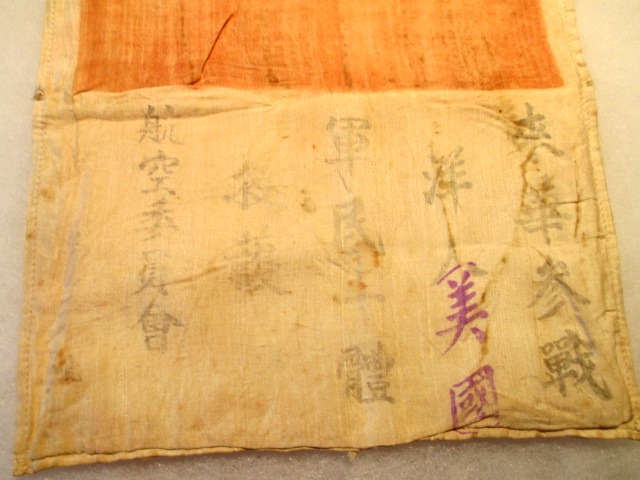 來華參戰
洋人美國
軍民一體
救護
航空委員會